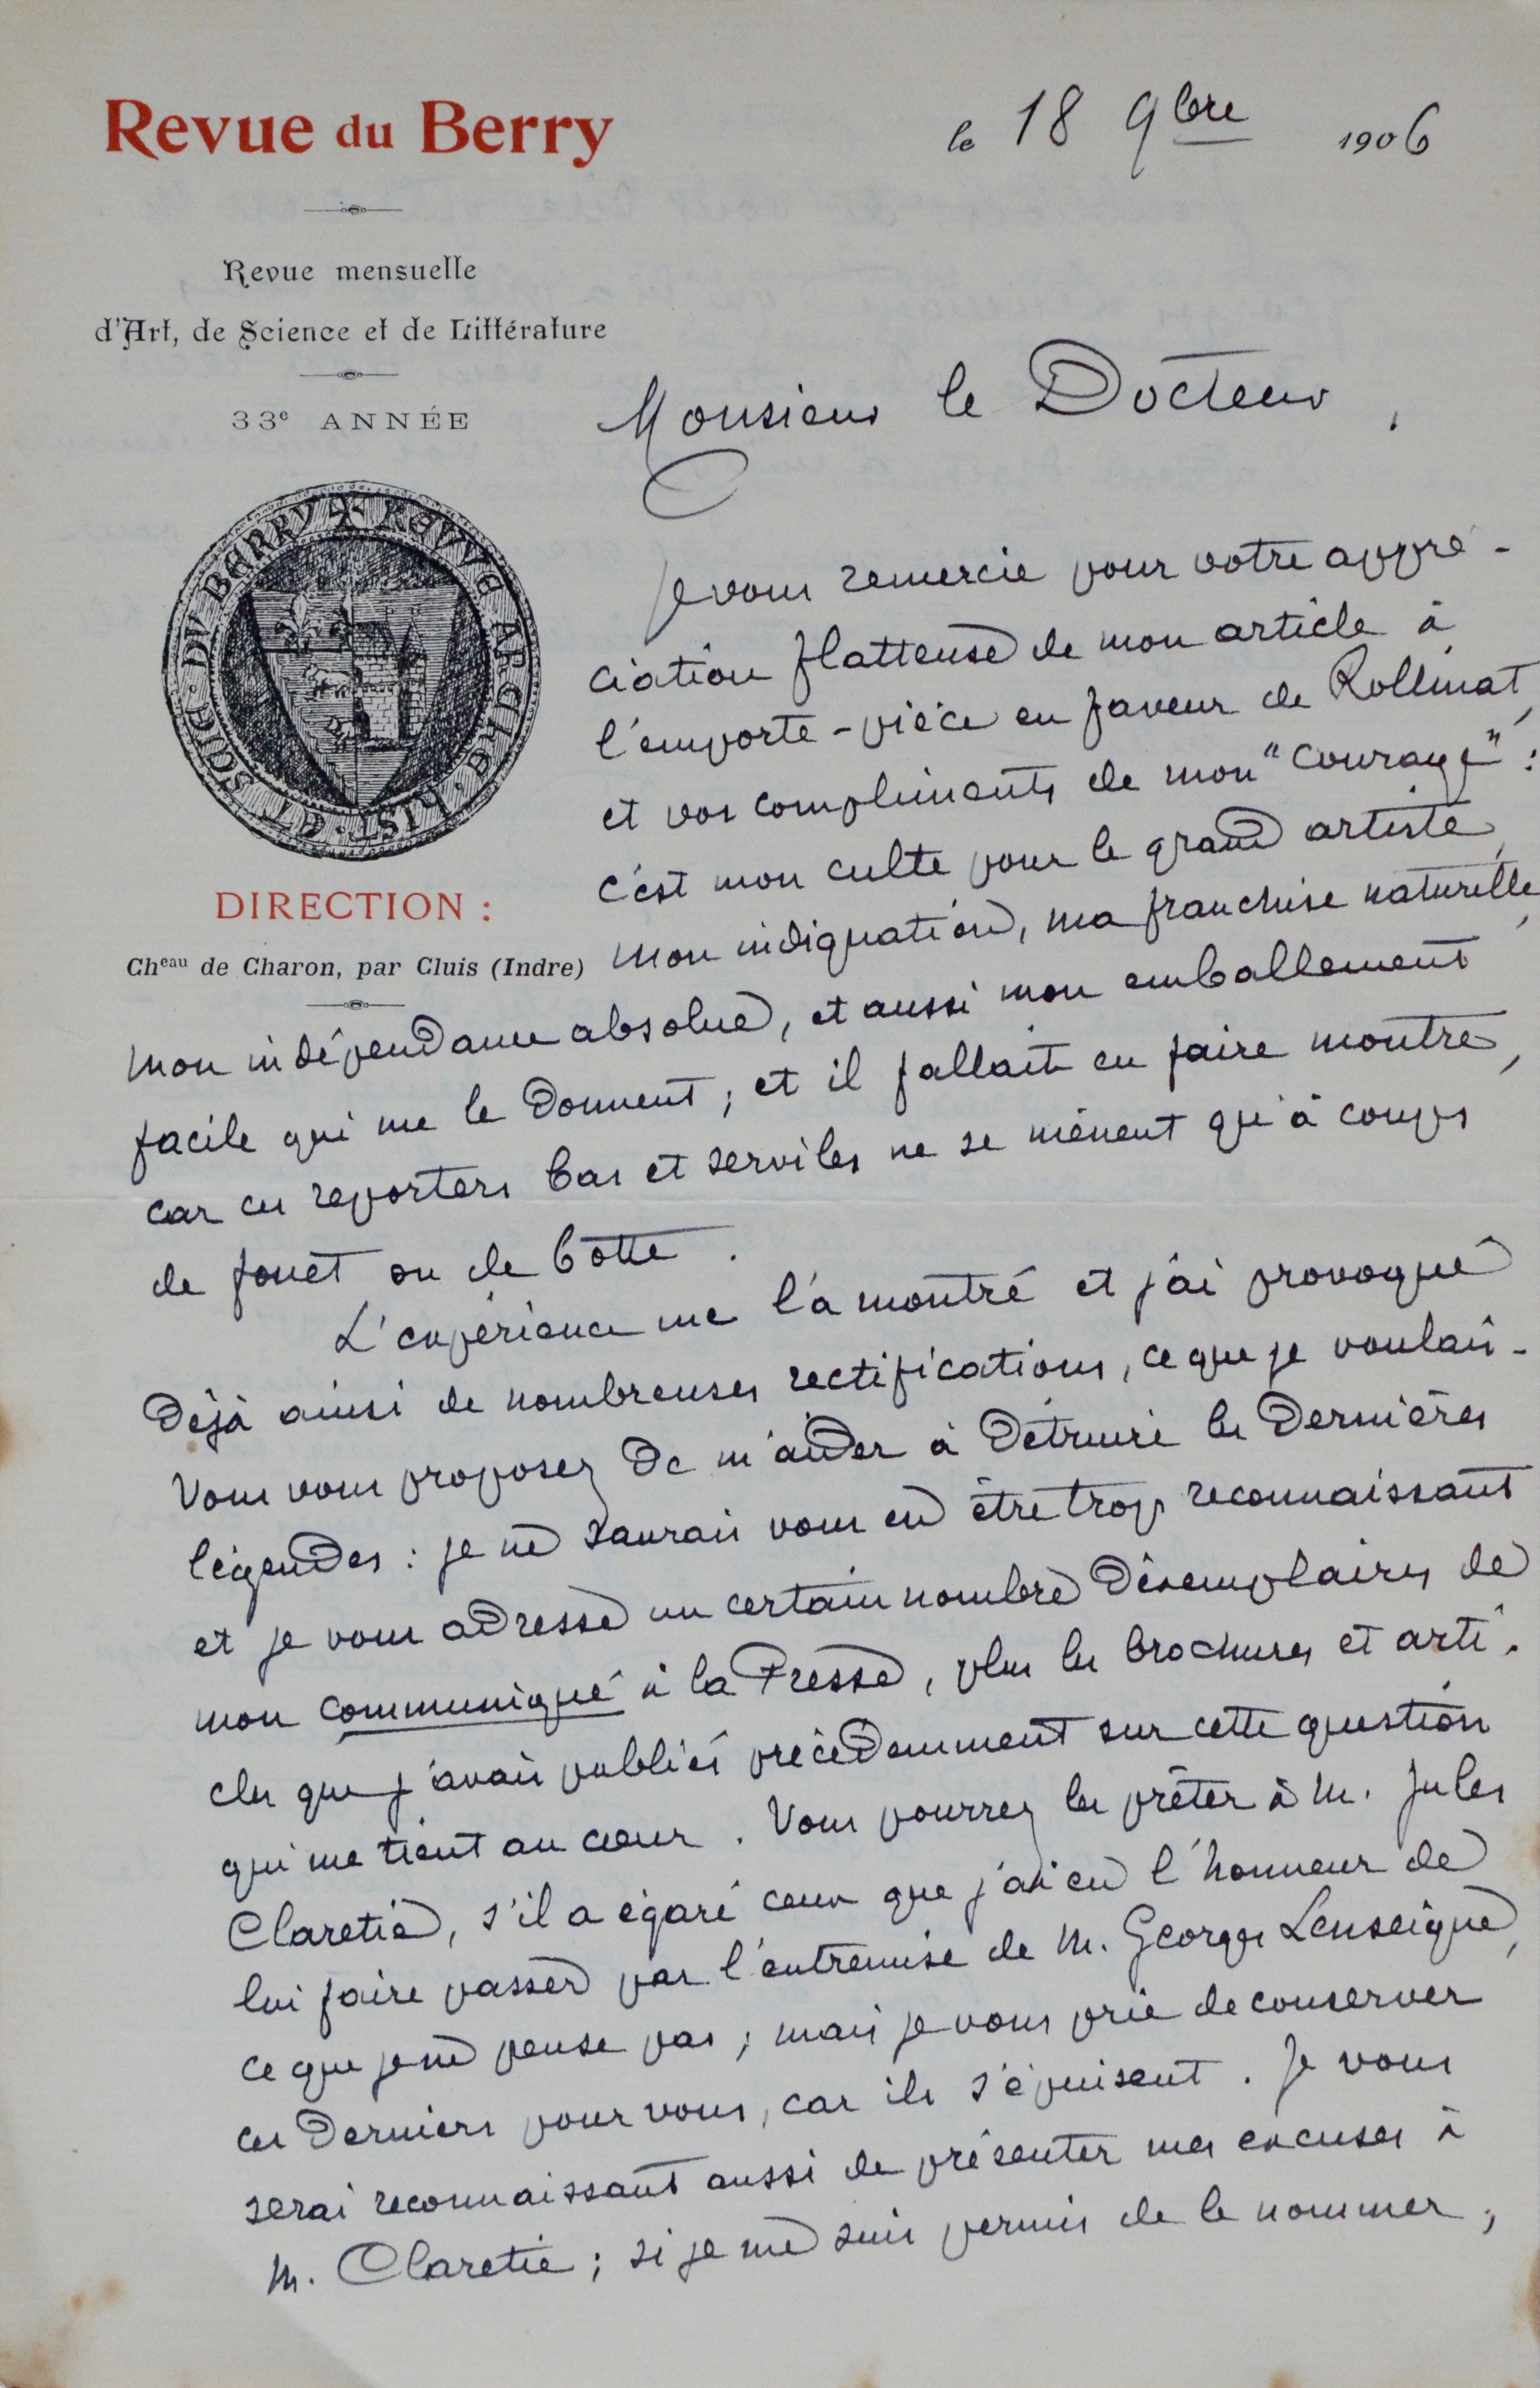 Revue du Berry
le 18 9bre 1906
Revue mensuelle
d'Art, de Science et de Littérature
33e ANNÉE
REVVE ARCHE. HIST. ET SCIE. DV BERRY
DIRECTION :
Cheau de Charon, par Cluis (Indre)
Monsieur le Docteur,
Je vous remercie pour votre appré-
ciation flatteuse de mon article à
l'emporte-pièce en faveur de Rollinat,
et vos compliments de mon "courage" :
c'est mon culte pour le grand artiste,
mon indignation, ma franchise naturelle,
mon indépendance absolue, et aussi mon emballement
facile qui me le donnent ; et il fallait en faire montre,
car ces reporters bas et serviles ne se mènent qu'à coups
de fouet ou de botte.
L'expérience me l'a montré et j'ai provoqué
déjà ainsi de nombreuses rectifications, ce que je voulais.
Vous vous proposez de m'aider à détruire les dernières
légendes : je ne saurais vous en être trop reconnaissant
et je vous adresse un certain nombre d'exemplaires de
mon communiqué à la Presse, plus les brochures et arti-
cles que j'avais publiés précédemment sur cette question
qui me tient au cœur. Vous pourrez les prêter à M. Jules
Claretie, s'il a égaré ceux que j'ai eu l'honneur de
lui faire passer par l'entremise de M. Georges Lenseigne,
ce que je ne pense pas ; mais je vous prie de conserver
ces derniers pour vous, car ils s'épuisent. Je vous
serai reconnaissant aussi de présenter mes excuses à
M. Claretie ; si je me suis permis de le nommer,